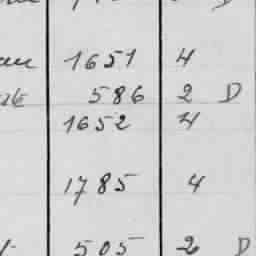 1651 4
586 2 D
1652 4
1785 4
505 2 D